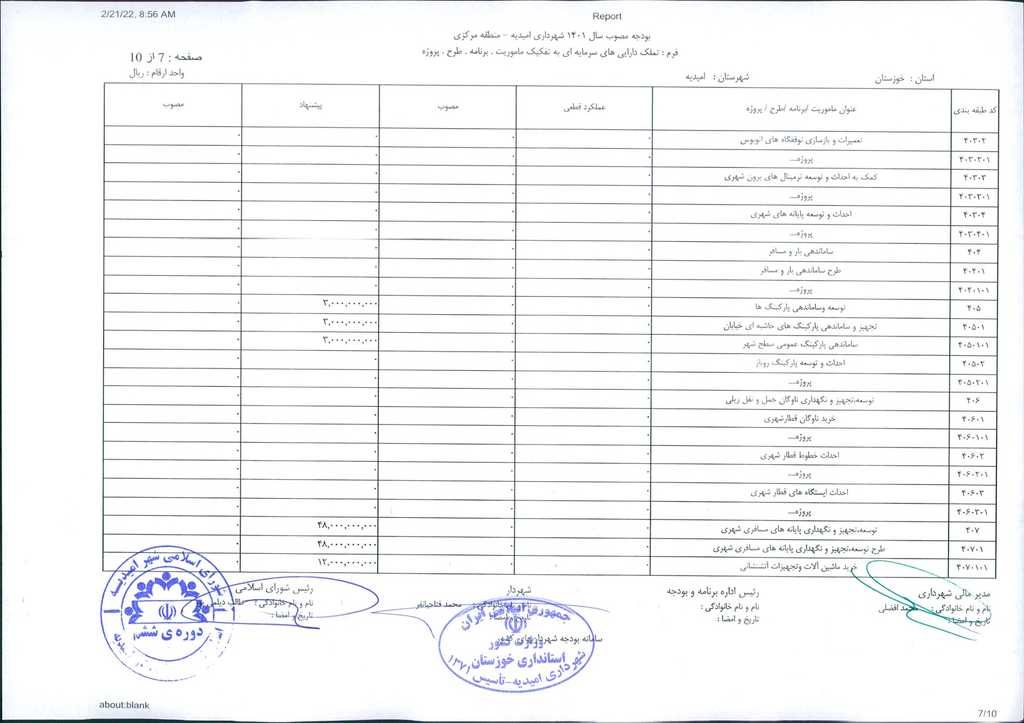 2/21/22, 8:56 AM Report
بودجه مصوب سال ۱۴۰۱ شهرداری امیدیه - منطقه مرکزی
فرم : تملک دارایی های سرمایه ای به تفکیک ماموریت ، برنامه ، طرح ، پروژه
صفحه : 7 از 10
واحد ارقام : ریال
استان : خوزستان شهرستان : امیدیه
کد طبقه بندی عنوان ماموریت /برنامه /طرح / پروژه عملکرد قطعی مصوب پیشنهاد مصوب
۴۰۳۰۲ تعمیرات و بازسازی توقفگاه های اتوبوس ۰ ۰ ۰ ۰
۴۰۳۰۲۰۱ پروژه... ۰ ۰ ۰ ۰
۴۰۳۰۳ کمک به احداث و توسعه ترمینال های برون شهری ۰ ۰ ۰ ۰
۴۰۳۰۳۰۱ پروژه... ۰ ۰ ۰ ۰
۴۰۳۰۴ احداث و توسعه پایانه های شهری ۰ ۰ ۰ ۰
۴۰۳۰۴۰۱ پروژه... ۰ ۰ ۰ ۰
۴۰۴ ساماندهی بار و مسافر ۰ ۰ ۰ ۰
۴۰۴۰۱ طرح ساماندهی بار و مسافر ۰ ۰ ۰ ۰
۴۰۴۰۱۰۱ پروژه... ۰ ۰ ۰ ۰
۴۰۵ توسعه وساماندهی پارکینگ ها ۰ ۰ ۳,۰۰۰,۰۰۰,۰۰۰ ۰
۴۰۵۰۱ تجهیز و ساماندهی پارکینگ های حاشیه ای خیابان ۰ ۰ ۳,۰۰۰,۰۰۰,۰۰۰ ۰
۴۰۵۰۱۰۱ ساماندهی پارکینگ عمومی سطح شهر ۰ ۰ ۳,۰۰۰,۰۰۰,۰۰۰ ۰
۴۰۵۰۲ احداث و توسعه پارکینگ روباز ۰ ۰ ۰ ۰
۴۰۵۰۲۰۱ پروژه... ۰ ۰ ۰ ۰
۴۰۶ توسعه،تجهیز و نگهداری ناوگان حمل و نقل ریلی ۰ ۰ ۰ ۰
۴۰۶۰۱ خرید ناوگان قطارشهری ۰ ۰ ۰ ۰
۴۰۶۰۱۰۱ پروژه... ۰ ۰ ۰ ۰
۴۰۶۰۲ احداث خطوط قطار شهری ۰ ۰ ۰ ۰
۴۰۶۰۲۰۱ پروژه... ۰ ۰ ۰ ۰
۴۰۶۰۳ احداث ایستگاه های قطار شهری ۰ ۰ ۰ ۰
۴۰۶۰۳۰۱ پروژه... ۰ ۰ ۰ ۰
۴۰۷ توسعه،تجهیز و نگهداری پایانه های مسافری شهری ۰ ۰ ۴۸,۰۰۰,۰۰۰,۰۰۰ ۰
۴۰۷۰۱ طرح توسعه،تجهیز و نگهداری پایانه های مسافری شهری ۰ ۰ ۴۸,۰۰۰,۰۰۰,۰۰۰ ۰
۴۰۷۰۱۰۱ خرید ماشین آلات وتجهیزات آتشنشانی ۰ ۰ ۱۲,۰۰۰,۰۰۰,۰۰۰ ۰
مدیر مالی شهرداری رئیس اداره برنامه و بودجه شهردار رئیس شورای اسلامی
نام و نام خانوادگی : محمد افضلی نام و نام خانوادگی : نام و نام خانوادگی : محمد فتاحیانفر نام و نام خانوادگی : طالب
تاریخ و امضا : تاریخ و امضا : تاریخ و امضا : تاریخ و امضا :
سامانه بودجه شهرداریهای کشور
جمهوری اسلامی ایران
وزارت کشور
استانداری خوزستان
شهرداری امیدیه-تأسیس ۱۳۷۱
شورای اسلامی شهر امیدیه
دوره ی ششم
about:blank 7/10